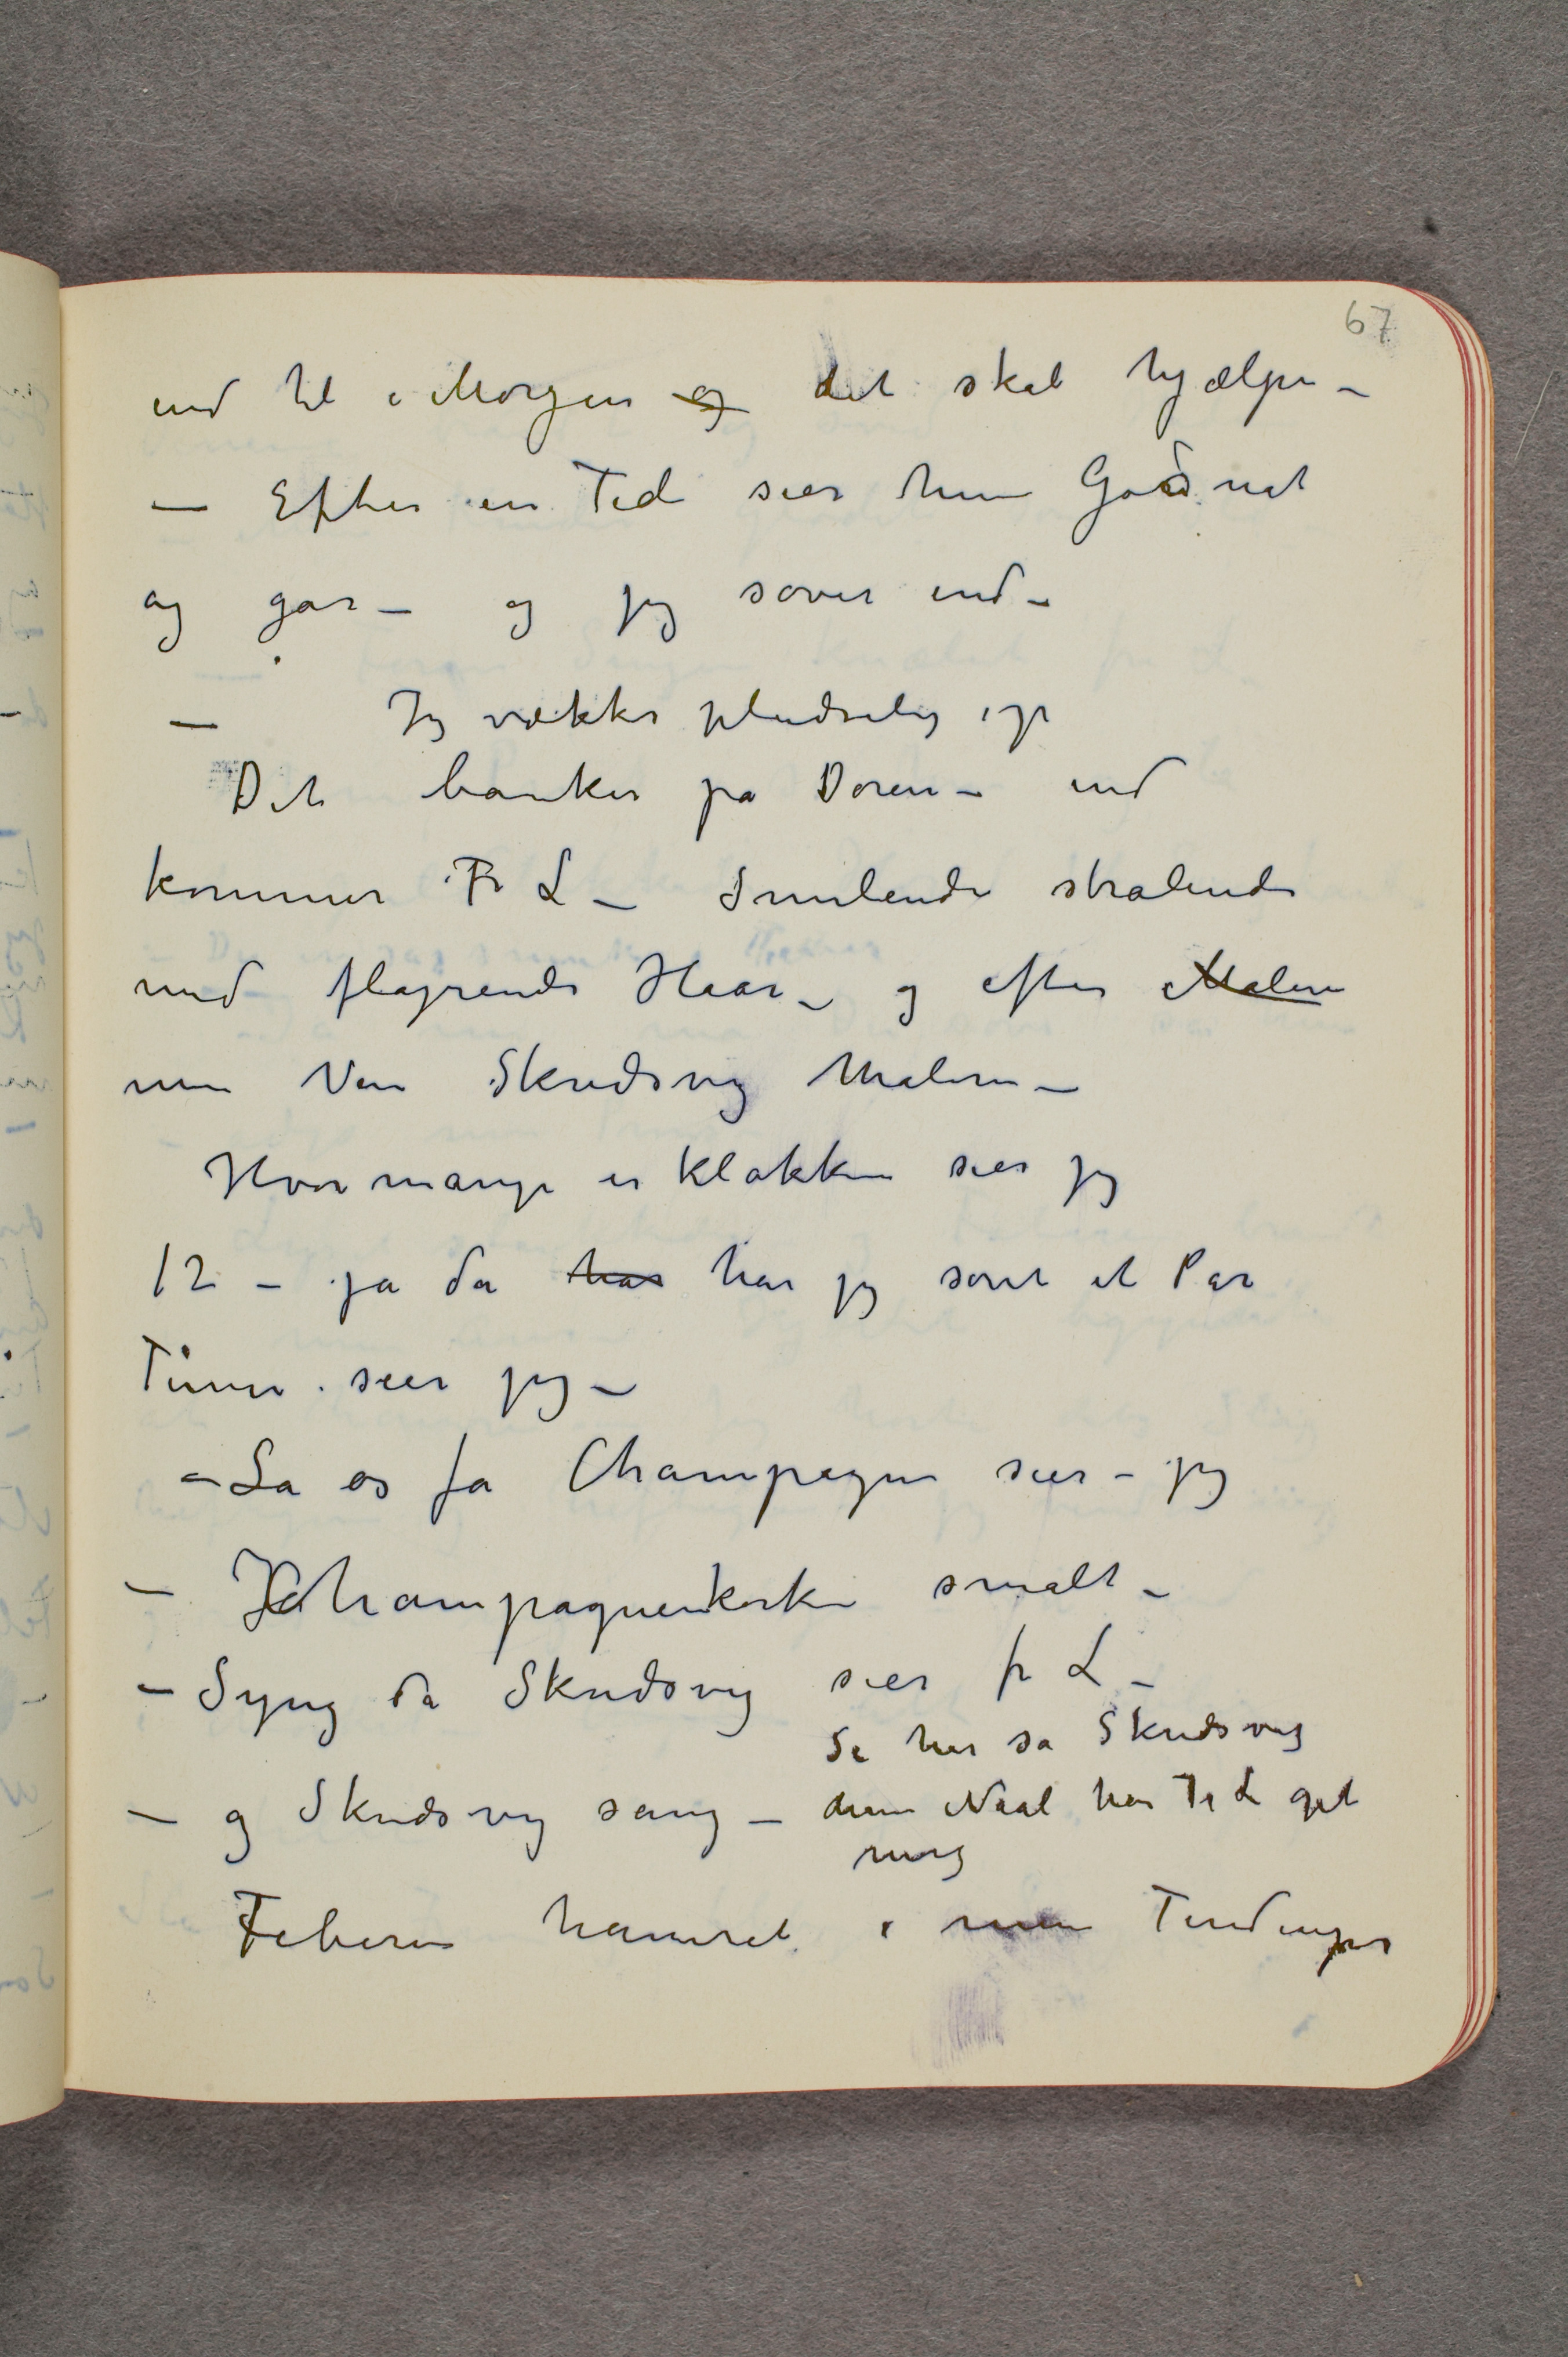 67
ind til i Morgen og det skal hjælpe –
– Efter en Tid sier hun Godnat
og går – og jeg sover ind –
– Jeg vækkes pludselig op
Det banker på Døren – ind
kommer Fr L – Smilende strålende
med flagrende Haar – og efter Maleren
min Ven Skredsvig Maleren –
Hvor mange er Klokken sier jeg
12 – ja da har har jeg sovet et Par
Timer sier jeg –
– La os få Champagne sier – jeg
– Champagnenkorken smalt –
– Syng da Skredsvig sier fr L –
Se her sa Skredsvig
– og Skredsvig sang – denne Naal har Fr L get
mig
Feberen hamret i mine Tindinger